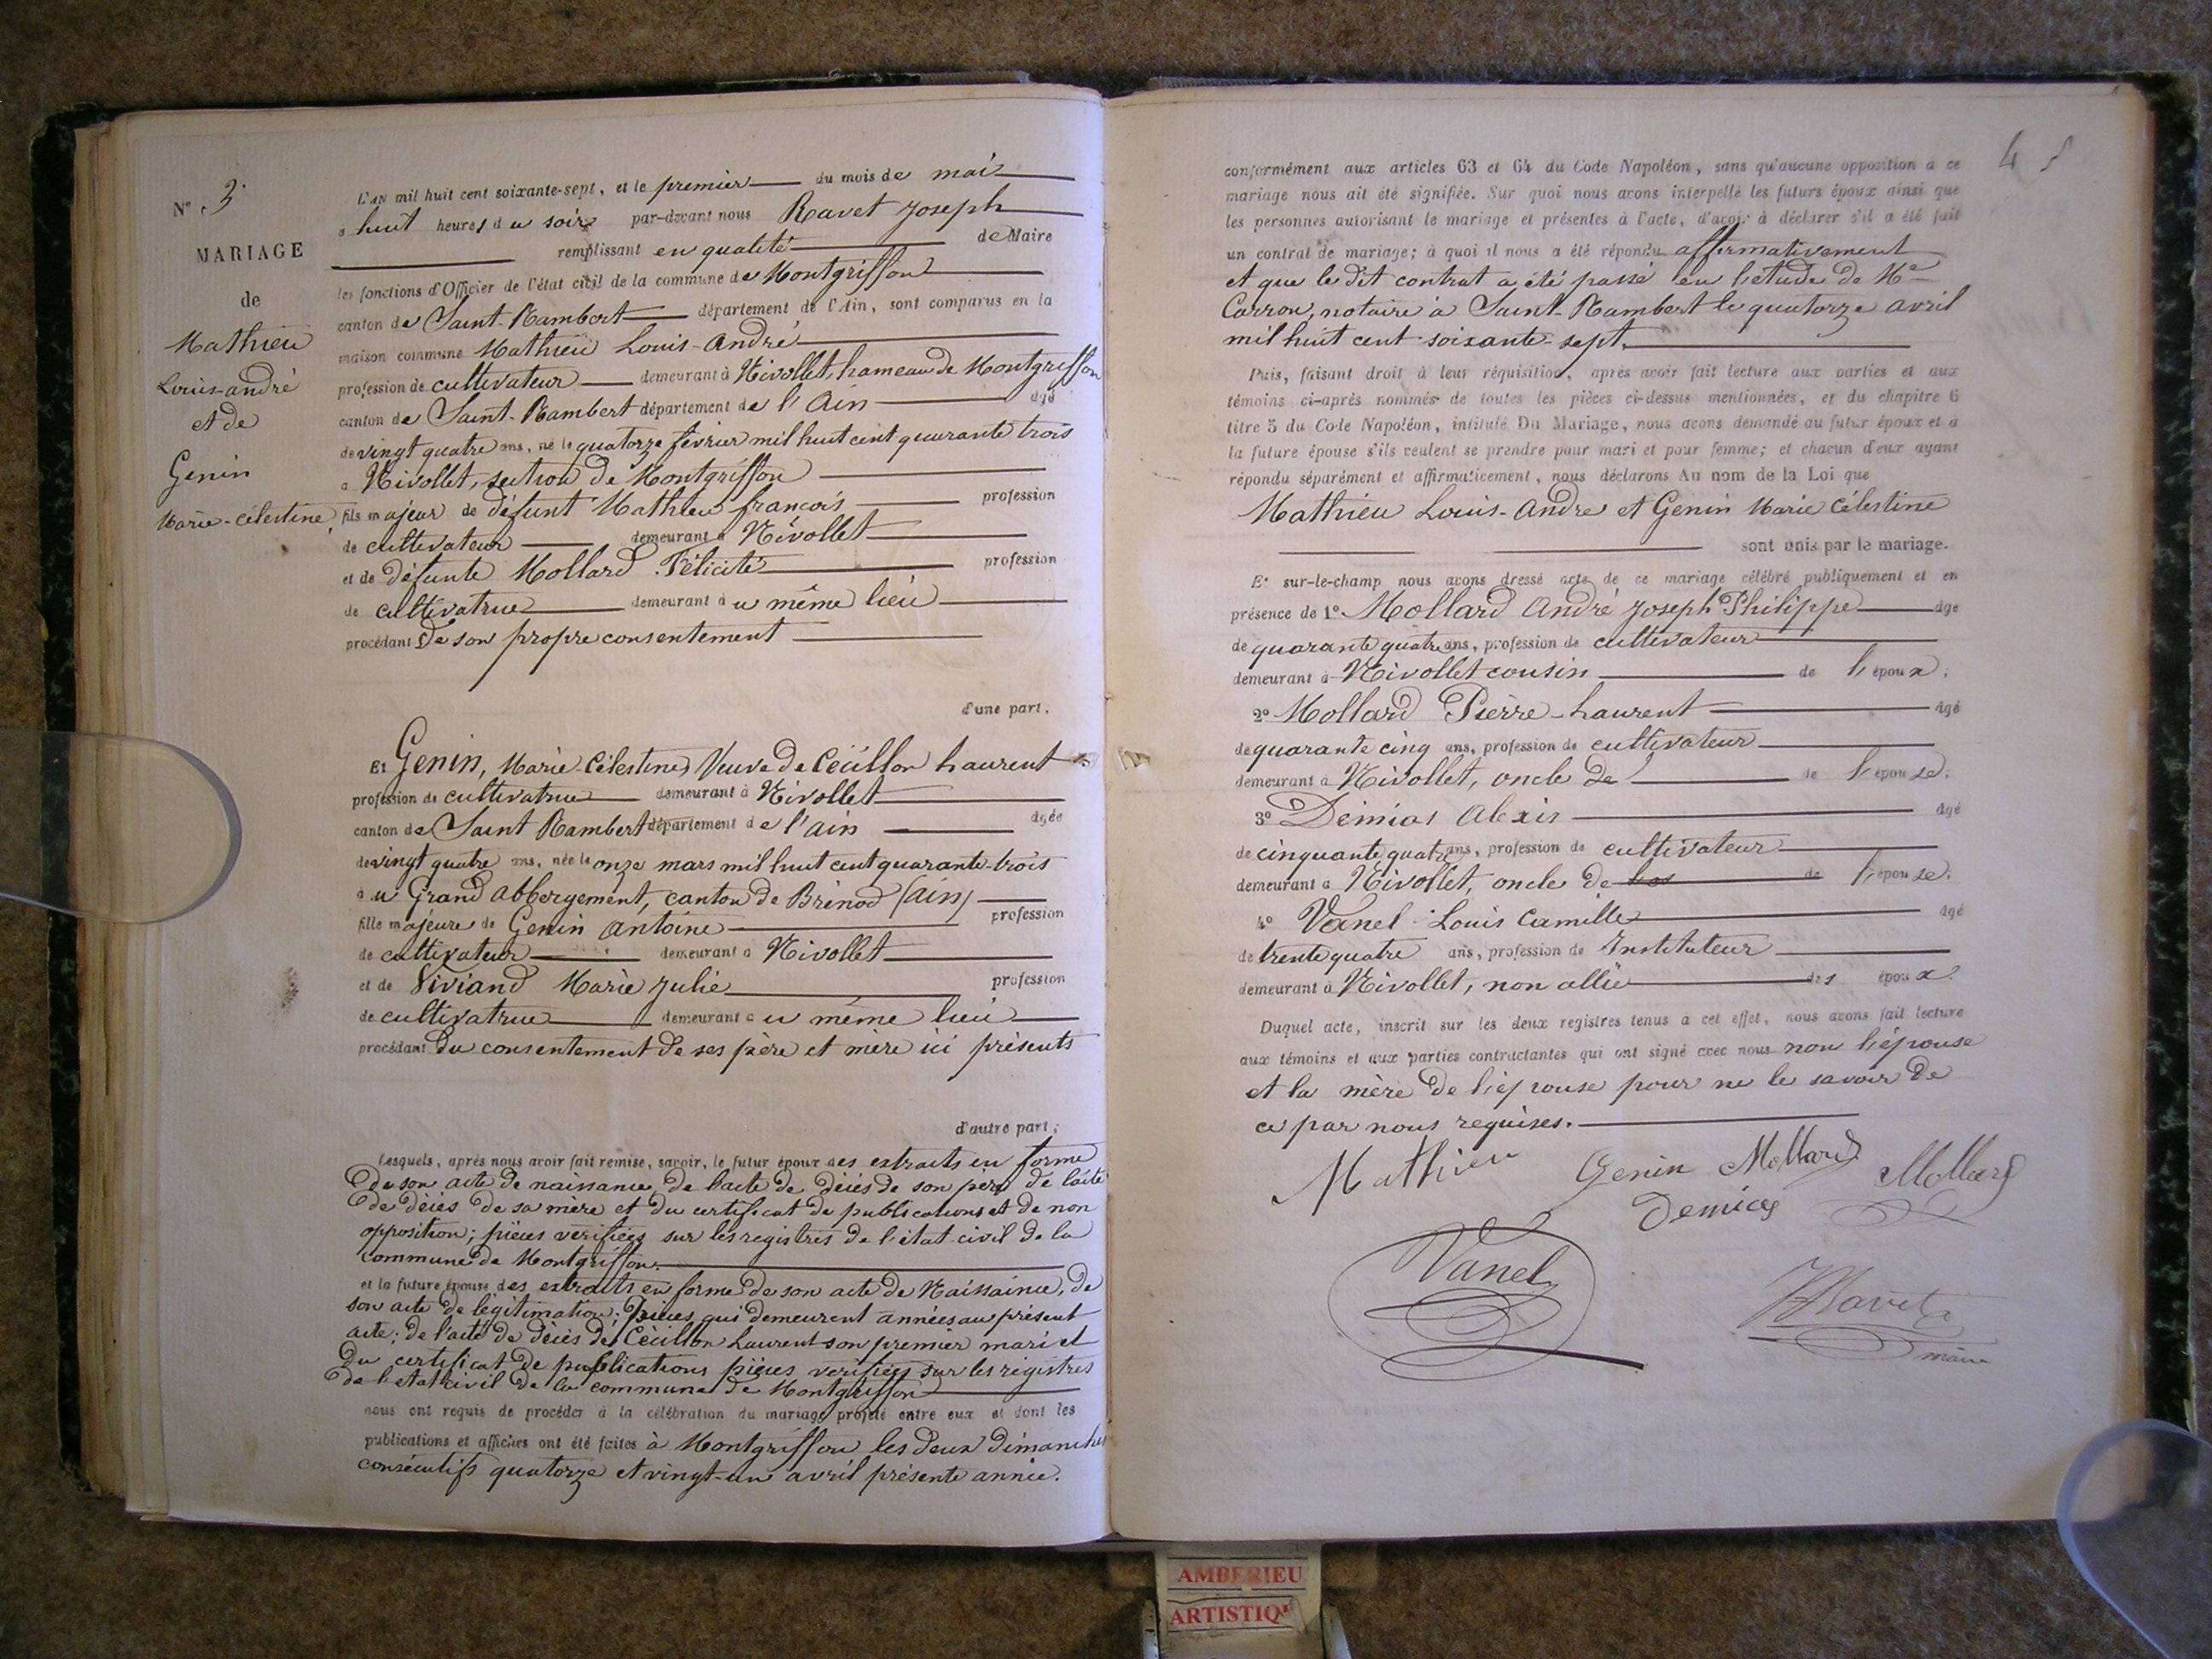 N° 3.
MARIAGE
de
Mathieu
Louis-andré
et de
Genin
Marie-Célestine
L'an mil huit cent soixante-sept, et le premier du mois de mai
à huit heures du soir par-devant nous Ravet Joseph
remplissant en qualité de Maire
les fonctions d'Officier de l'état civil de la commune de Montgriffon
canton de Saint-Rambert département de l'Ain, sont comparus en la
maison commune Mathieu Louis-André
profession de cultivateur demeurant à Nivollet, hameau de Montgriffon
canton de Saint-Rambert département de l'Ain âgé
de vingt quatre ans, né le quatorze février mil huit cent quarante trois
à Nivollet, section de Montgriffon
fils majeur de défunt Mathieu françois profession
de cultivateur demeurant à Nivollet
et de défunte Mollard Félicité profession
de cultivatrice demeurant au même lieu
procédant de son propre consentement
d'une part.
Et Genin, Marie-Célestine, Veuve de Cécillon Laurent
profession de cultivatrice demeurant à Nivollet
canton de Saint Rambert département de l'ain âgée
de vingt quatre ans, née le onze mars mil huit cent quarante-trois
au Grand abbergement, canton de Brénod (ain)
fille majeure de Genin Antoine profession
de cultivateur demeurant à Nivollet
et de Viviand Marie Julie profession
de cultivatrice demeurant au même lieu
procédant du consentement de ses père et mère ici présents
d'autre part;
Lesquels, après nous avoir fait remise, savoir, le futur époux des extraits en forme
de son acte de naissance, de l'acte de décès de son père de l'acte
de décès de sa mère et du certificat de publications et de non
opposition; pièces vérifiées sur les registres de l'état-civil de la
commune de Montgriffon.
et la future épouse des extraits en forme de son acte de Naissance, de
son acte de légitimation; Pièces qui demeurent annéés au présent
acte; de l'acte de décès de Cécillon Laurent son premier mari et
du certificat de publications pièces vérifiées sur les registres
de l'état civil de la commune de Montgriffon
nous ont requis de procéder à la célébration du mariage projeté entre eux et dont les
publications et affiches ont été faites à Montgriffon les deux dimanches
consécutifs quatorze et vingt-un avril présente année.
4
conformément aux articles 63 et 64 du Code Napoléon, sans qu'aucune opposition à ce
mariage nous ait été signifiée. Sur quoi nous avons interpellé les futurs époux ainsi que
les personnes autorisant le mariage et présentes à l'acte, d'avoir à déclarer s'il a été fait
un contrat de mariage; à quoi il nous a été répondu affirmativement
et que le dit contrat a été passé en l'étude de Me
Carron, notaire à Saint-Rambert le quatorze avril
mil huit cent soixante-sept.
Puis, faisant droit à leur réquisition, après avoir fait lecture aux parties et aux
témoins ci-après nommés de toutes les pièces ci-dessus mentionnées, et du chapitre 6
titre 5 du Code Napoléon, intitulé Du Mariage, nous avons demandé au futur époux et à
la future épouse s'ils veulent se prendre pour mari et pour femme; et chacun d'eux ayant
répondu séparément et affirmativement, nous déclarons Au nom de la Loi que
Mathieu Louis-André et Genin Marie Célestine
sont unis par le mariage.
Et sur-le-champ nous avons dressé acte de ce mariage célébré publiquement et en
présence de 1° Mollard André Joseph Philippe âgé
de quarante quatre ans, profession de cultivateur
demeurant à Nivollet cousin de l'époux;
2° Mollard Pierre-Laurent âgé
de quarante cinq ans, profession de cultivateur
demeurant à Nivollet, oncle de de l'épouse;
3° Démias Alexis âgé
de cinquante quatre ans, profession de cultivateur
demeurant à Nivollet, oncle de de l'épouse;
4° Vanel Louis Camille âgé
de trente quatre ans, profession de Instituteur
demeurant à Nivollet, non allié des époux.
Duquel acte, inscrit sur les deux registres tenus à cet effet, nous avons fait lecture
aux témoins et aux parties contractantes qui ont signé avec nous non l'épouse
et la mère de l'épouse pour ne le savoir de
ce par nous requises.
Mathieu Genin Mollard Mollard
Demias
Vanel
Ravet
maire
AMBERIEU
ARTISTIQU